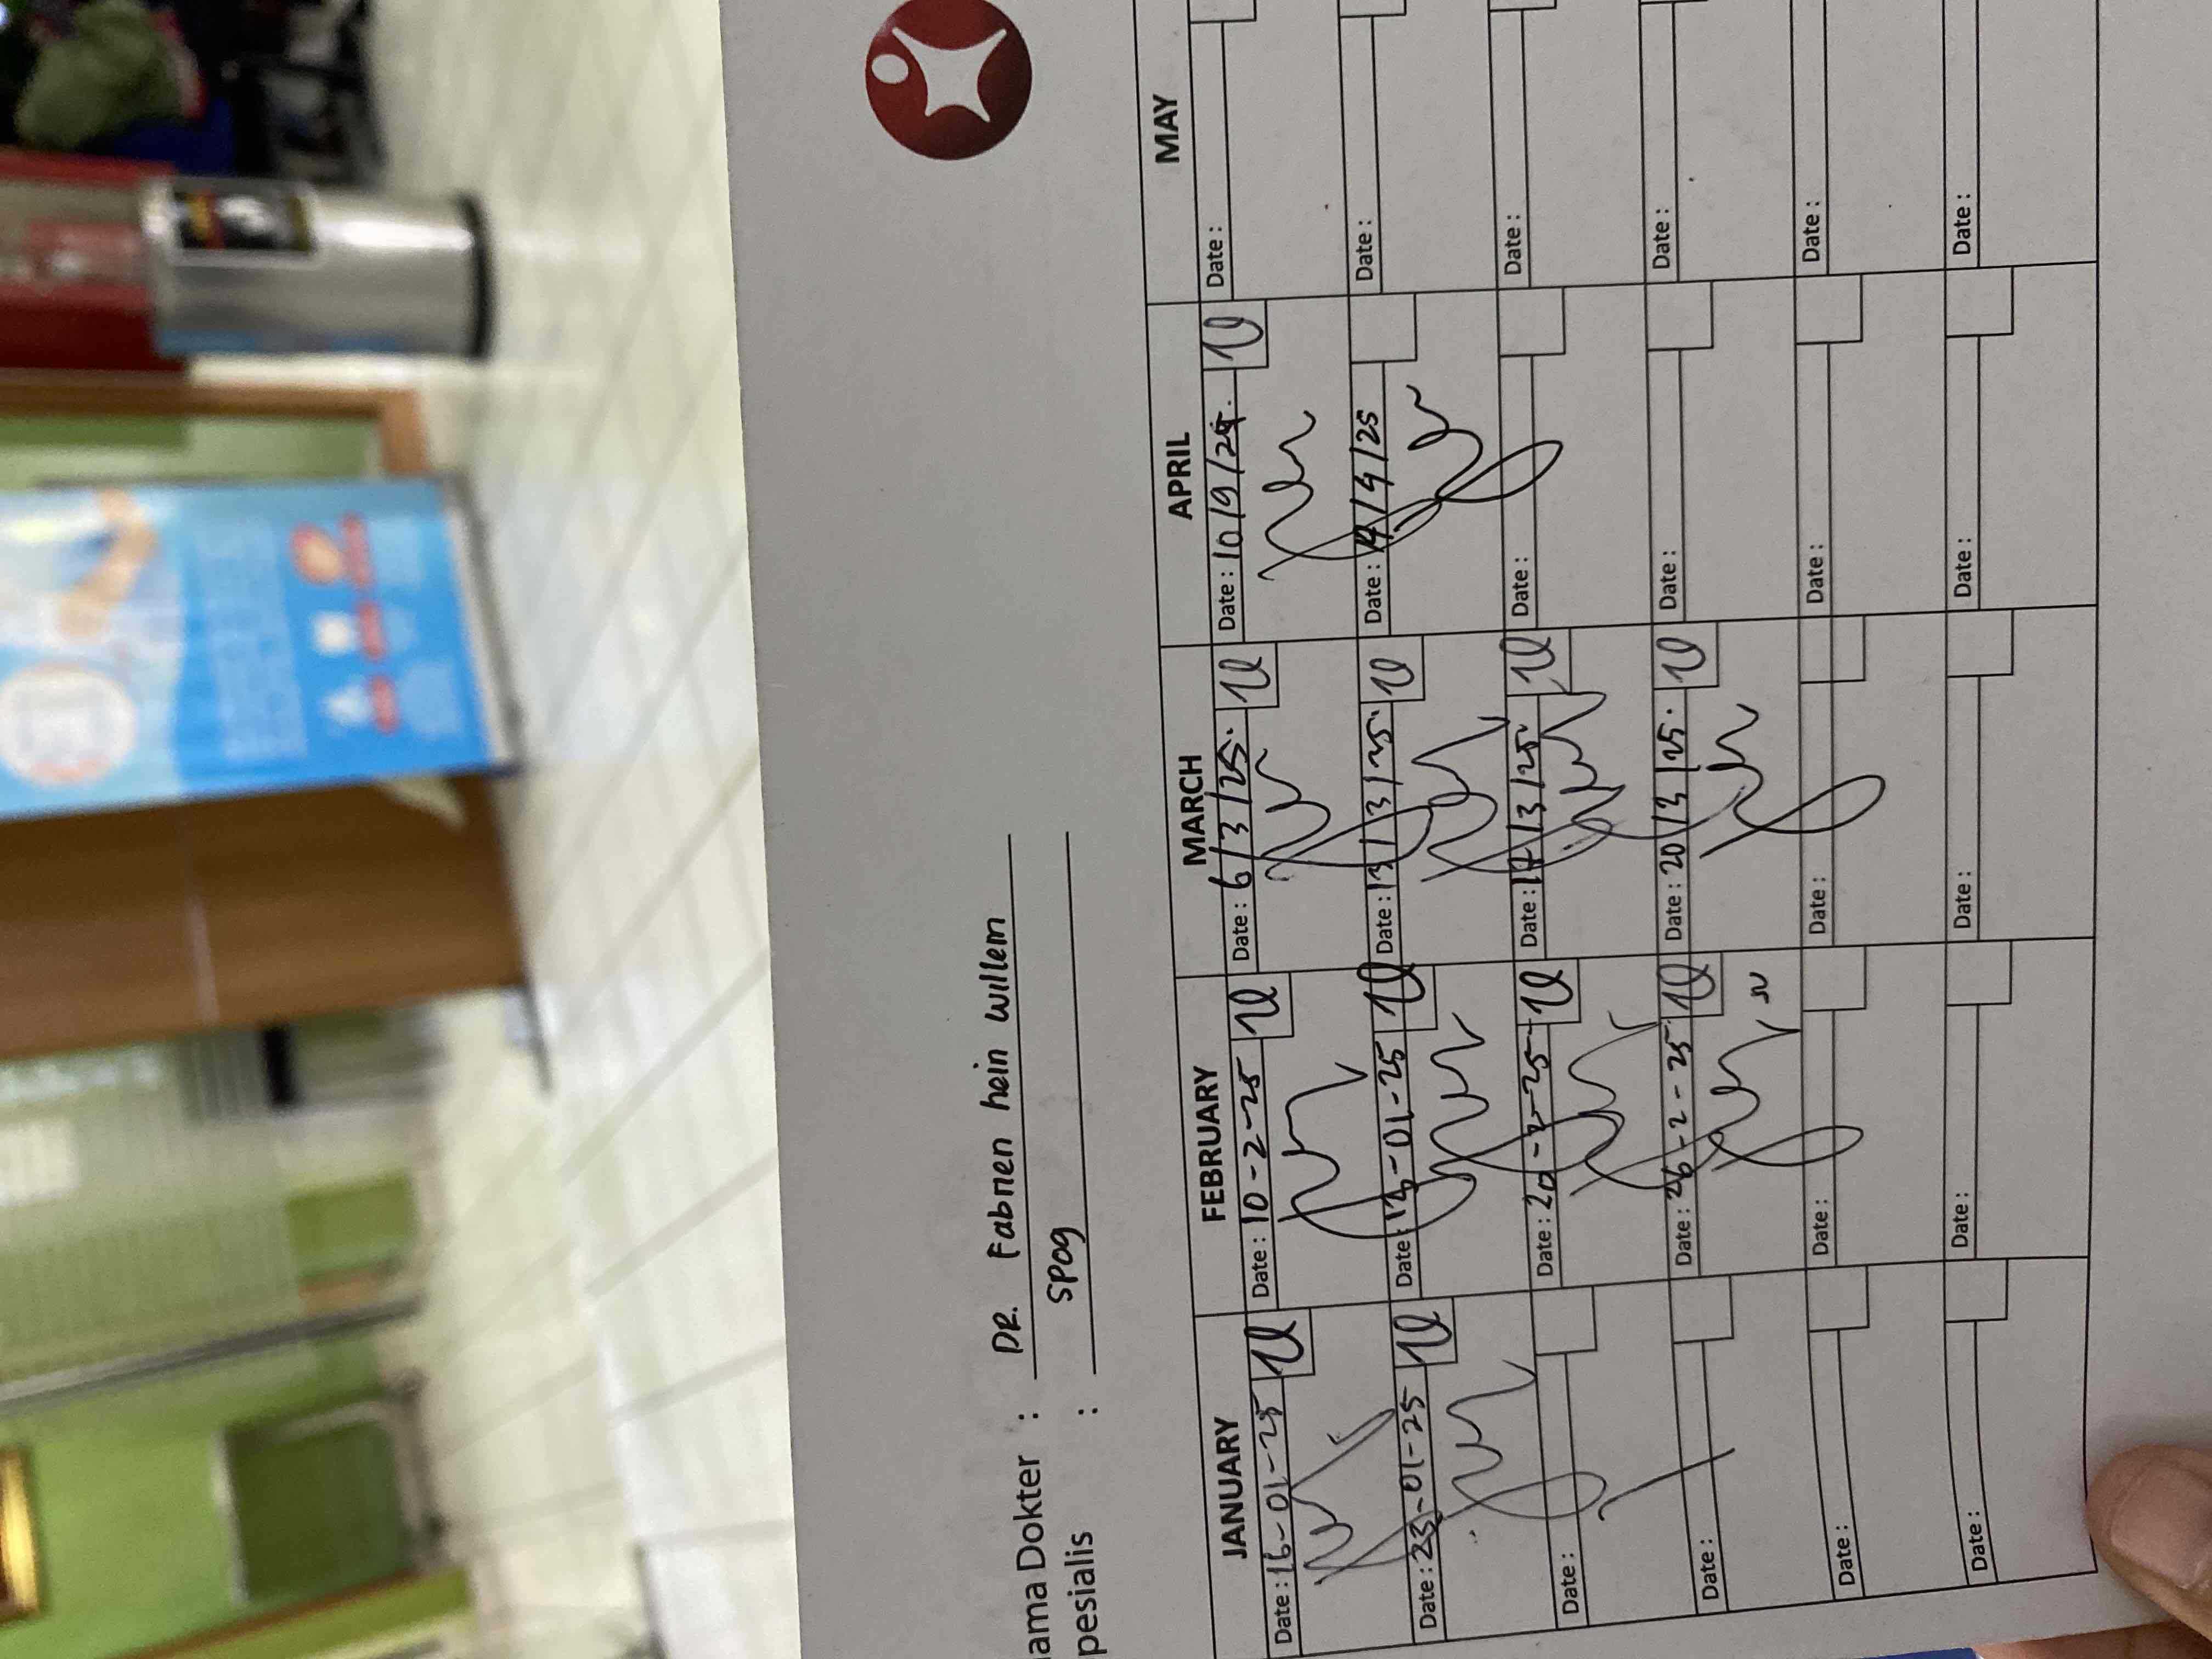 ama Dokter : DR. Fabnen hein willem
pesialis : SPOG
JANUARY FEBRUARY MARCH APRIL MAY
Date : 16-01-25 Date : 10-2-25 Date : 6/3/25. Date : 10/9/25. Date :
Date : 23-01-25 Date : 13-01-25 Date : 13/3/25. Date : 14/4/25 Date :
Date : Date : 20-2-25 Date : 17/3/25 Date : Date :
Date : Date : 26-2-25 Date : 20/3/25. Date : Date :
Date : Date : Date : Date : Date :
Date : Date : Date : Date : Date :